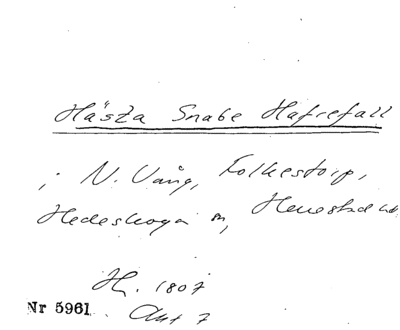 Hästa Snabe Hafrefall
i N. Vång, Folkestorp,
Hedeskoga m,
H. 1807
Nr 5961 Akt 7